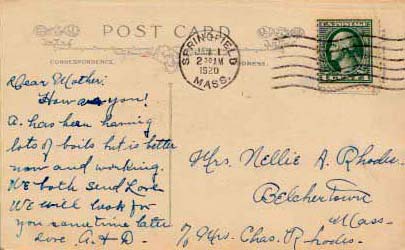 POST CARD
CORRESPONDENCE.
ADDRESS.
SPRINGFIELD
JAN 1
2 30 AM
1920
MASS.
U.S. POSTAGE
1 CENT 1
Dear Mother:
How are you!
A. has been having
lots of boils but is better
now and working.
We both send Love
We will look for
you sometime later
Love A. & D.
Mrs. Nellie A. Rhodes
Belchertown
Mass.
c/o Mrs. Chas. Rhodes.